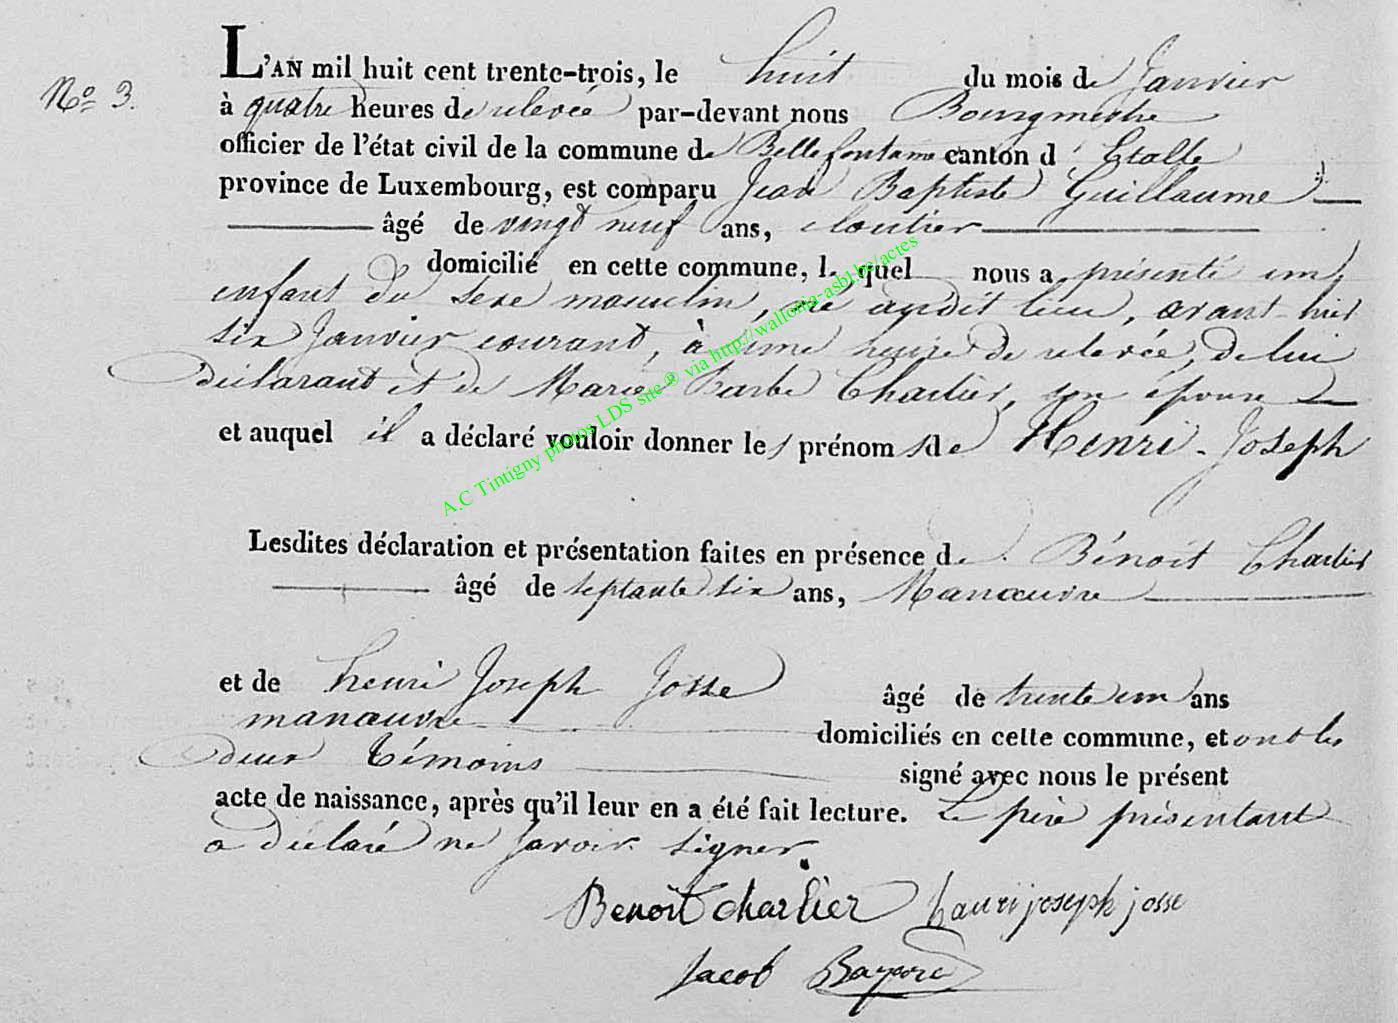 L'AN mil huit cent trente-trois, le huit du mois de Janvier
No 3. à quatre heures de relevée par-devant nous Bourgmestre
officier de l'état civil de la commune de Bellefontaine canton d' Etalle
province de Luxembourg, est comparu Jean Baptiste Guillaume
âgé de vingt neuf ans, cloutier
domicilié en cette commune, lequel nous a présenté un
enfant du sexe masculin, né audit lieu, avant-hier
six Janvier courant, à une heure de relevée, de lui
déclarant et de Marie Barbe Charlier, son épouse
et auquel il a déclaré vouloir donner les prénoms de Henri-Joseph
Lesdites déclaration et présentation faites en présence de Bénoit Charlier
âgé de septante six ans, Manœuvre
et de henri Joseph Josse âgé de trente un ans
manœuvre domiciliés en cette commune, et ont les
deux témoins signé avec nous le présent
acte de naissance, après qu'il leur en a été fait lecture. Le père présentant
a déclaré ne savoir signer.
Benoit charlier hauri joseph josse
Jacob
A.C Tintigny photos LDS site® via http://wallonia-asbl.be/actes